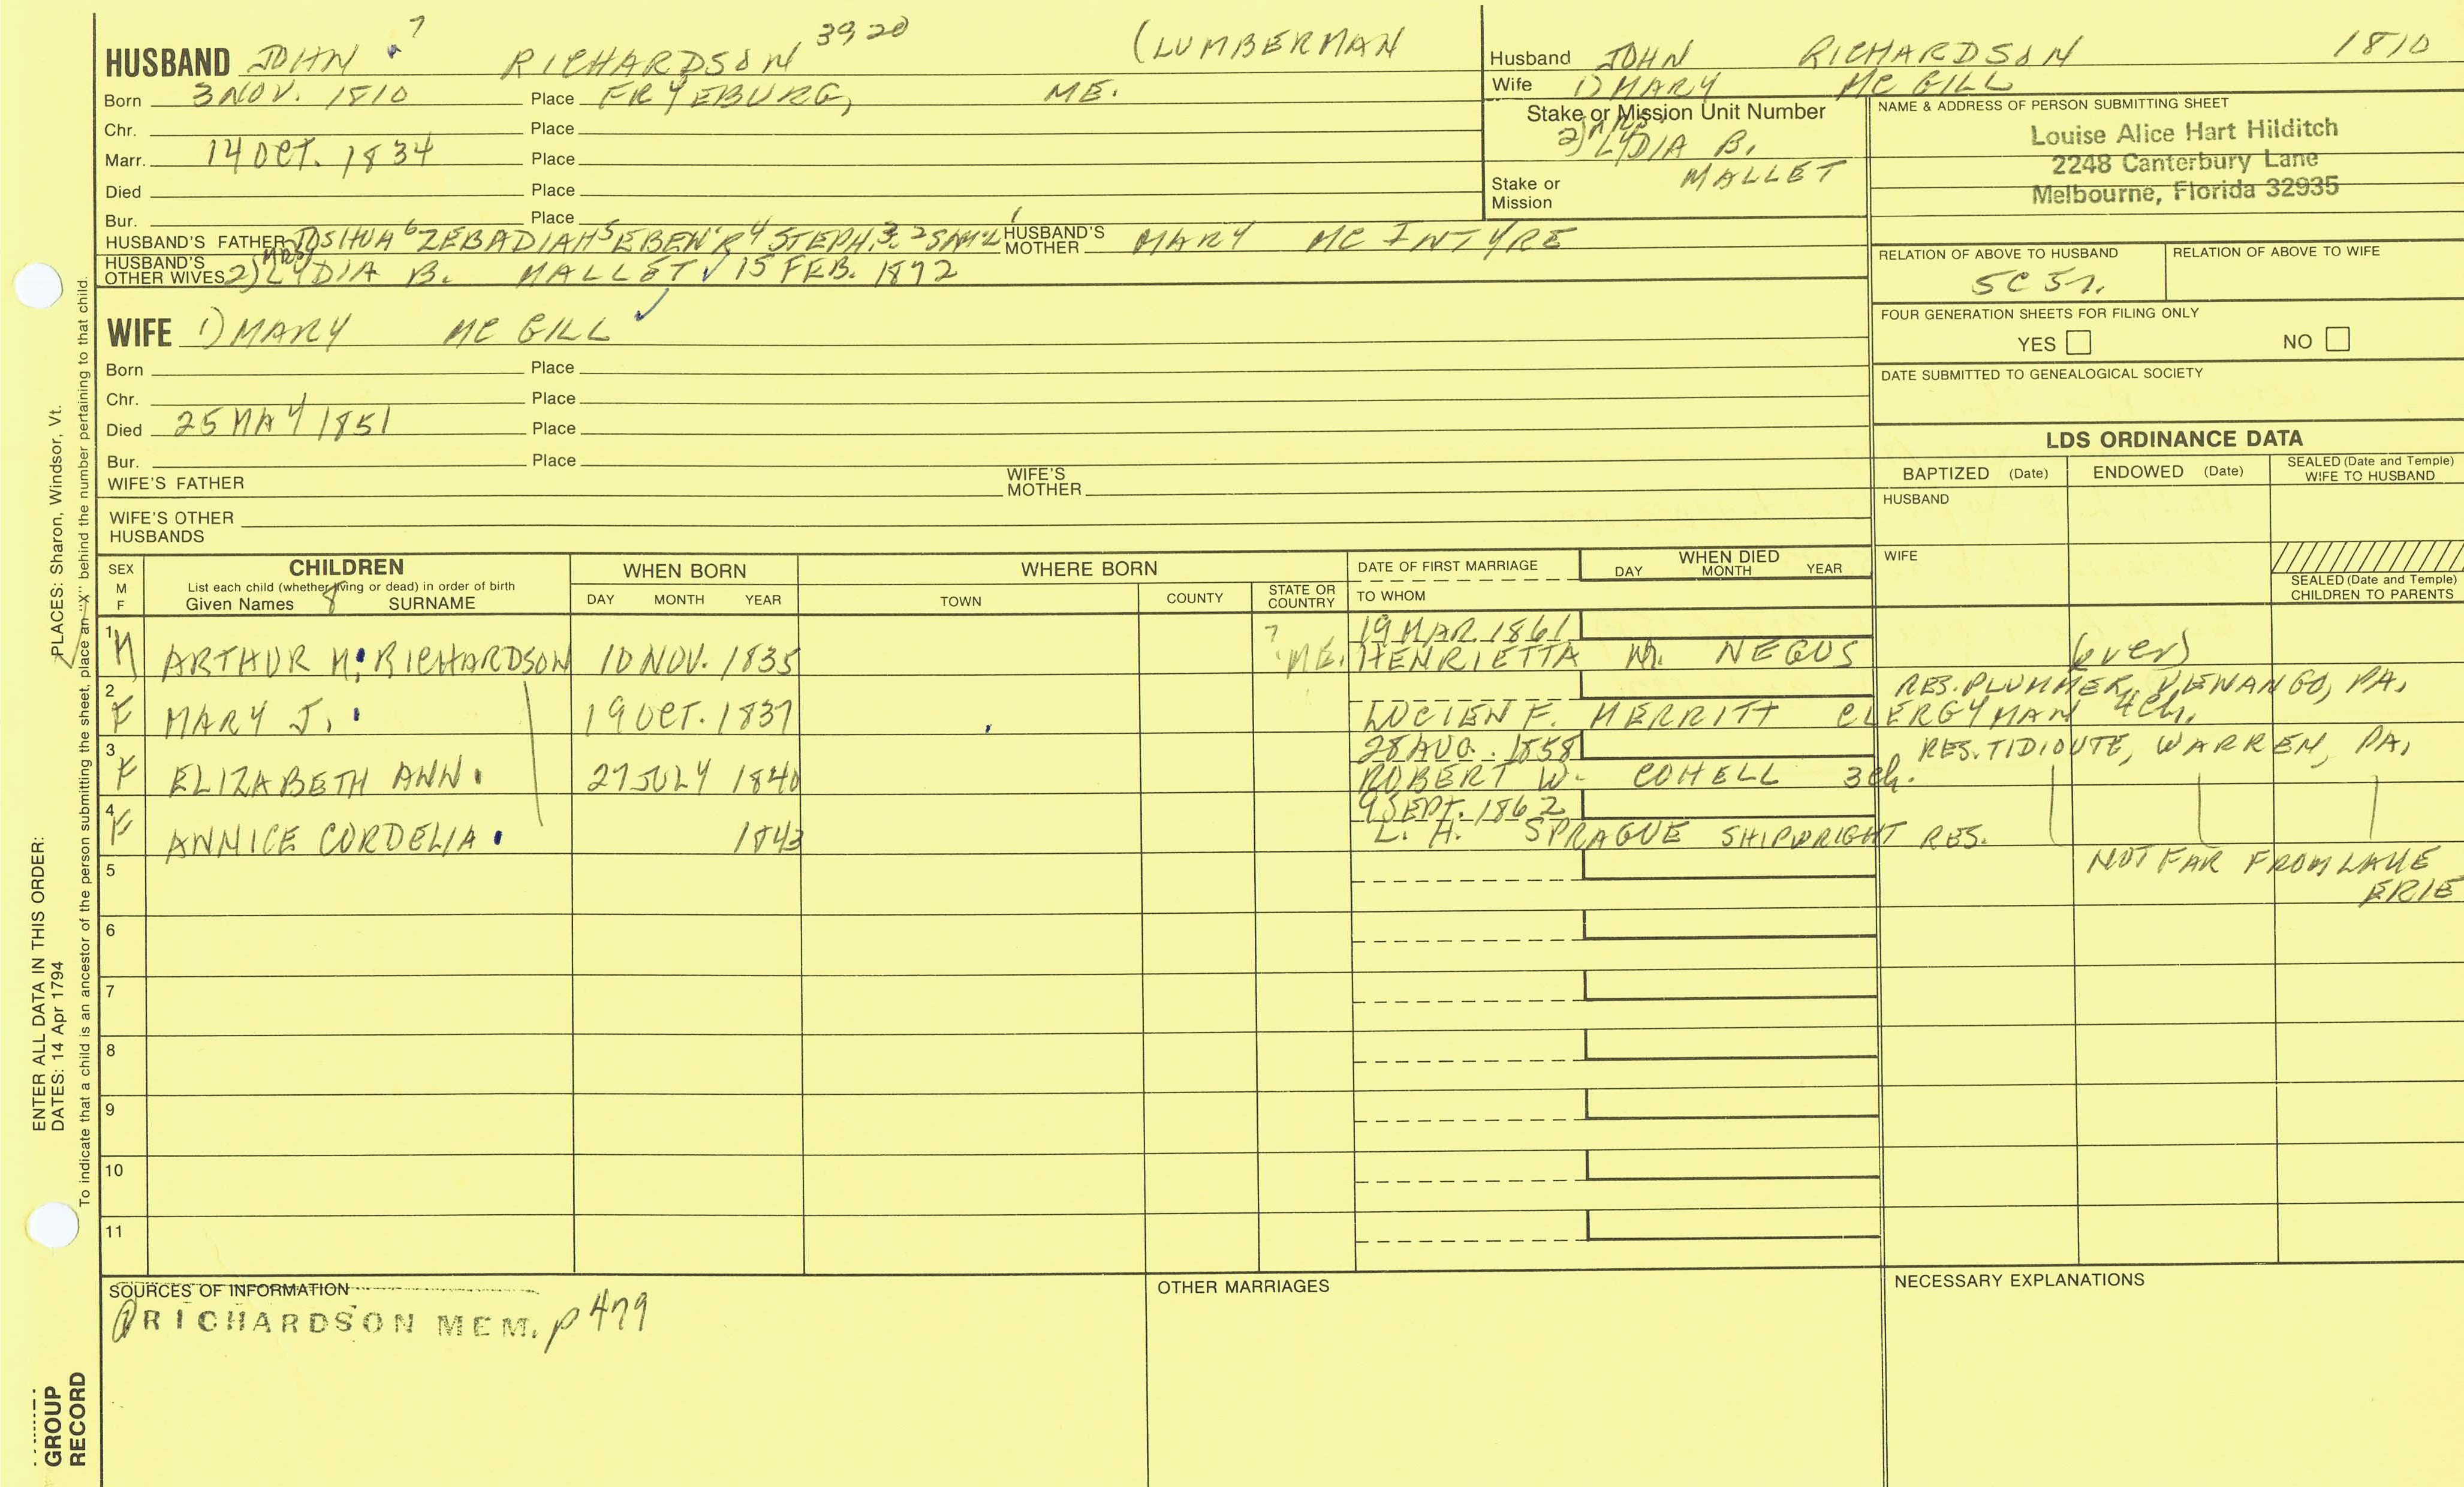 HUSBAND JOHN 7 RICHARDSON 3920 (LUMBERMAN
Born 3 NOV. 1810 Place FRYEBURG, ME.
Chr. Place
Marr. 14 OCT. 1834 Place
Died Place
Bur. Place
HUSBAND'S FATHER JOSHUA 6 ZEBADIAH 5 EBEN'R 4 STEPH. 3 2 SAM'L 1 HUSBAND'S MOTHER MARY MC INTYRE
HUSBAND'S OTHER WIVES 2) MRS. LYDIA B. MALLET ✓ 15 FEB. 1872
Husband JOHN RICHARDSON 1810
Wife 1) MARY MC GILL
Stake or Mission Unit Number
2) MRS. LYDIA B.
MALLET
Stake or Mission
NAME & ADDRESS OF PERSON SUBMITTING SHEET
Louise Alice Hart Hilditch
2248 Canterbury Lane
Melbourne, Florida 32935
RELATION OF ABOVE TO HUSBAND RELATION OF ABOVE TO WIFE
5C 5r.
FOUR GENERATION SHEETS FOR FILING ONLY
YES NO
DATE SUBMITTED TO GENEALOGICAL SOCIETY
WIFE 1) MARY MC GILL ✓
Born Place
Chr. Place
Died 25 MAY 1851 Place
Bur. Place
WIFE'S FATHER WIFE'S MOTHER
WIFE'S OTHER HUSBANDS
LDS ORDINANCE DATA
BAPTIZED (Date) ENDOWED (Date) SEALED (Date and Temple) WIFE TO HUSBAND
HUSBAND
WIFE
SEALED (Date and Temple) CHILDREN TO PARENTS
SEX M F
CHILDREN
List each child (whether living or dead) in order of birth
Given Names 8 SURNAME
WHEN BORN
DAY MONTH YEAR
WHERE BORN
TOWN COUNTY STATE OR COUNTRY
DATE OF FIRST MARRIAGE
TO WHOM
WHEN DIED
DAY MONTH YEAR
1 M ARTHUR M. RICHARDSON 10 NOV. 1835 ? ME. 19 MAR. 1861
HENRIETTA M. NEGUS (over)
2 F MARY J. 19 OCT. 1837 RES. PLUMMER, VENANGO, PA.
LUCIEN F. MERRITT CLERGYMAN 4 ch.
3 F ELIZABETH ANN 27 JULY 1840 28 AUG. 1858 RES. TIDIOUTE, WARREN, PA.
ROBERT W. COHELL 3 ch.
4 F ANNICE CORDELIA 1843 9 SEPT. 1862
L. H. SPRAGUE SHIPWRIGHT RES.
NOT FAR FROM LAKE
ERIE
5
6
7
8
9
10
11
SOURCES OF INFORMATION
RICHARDSON MEM. p 479
OTHER MARRIAGES
NECESSARY EXPLANATIONS
ENTER ALL DATA IN THIS ORDER:
DATES: 14 Apr 1794
PLACES: Sharon, Windsor, Vt.
To indicate that a child is an ancestor of the person submitting the sheet, place an "X" behind the number pertaining to that child.
GROUP
RECORD